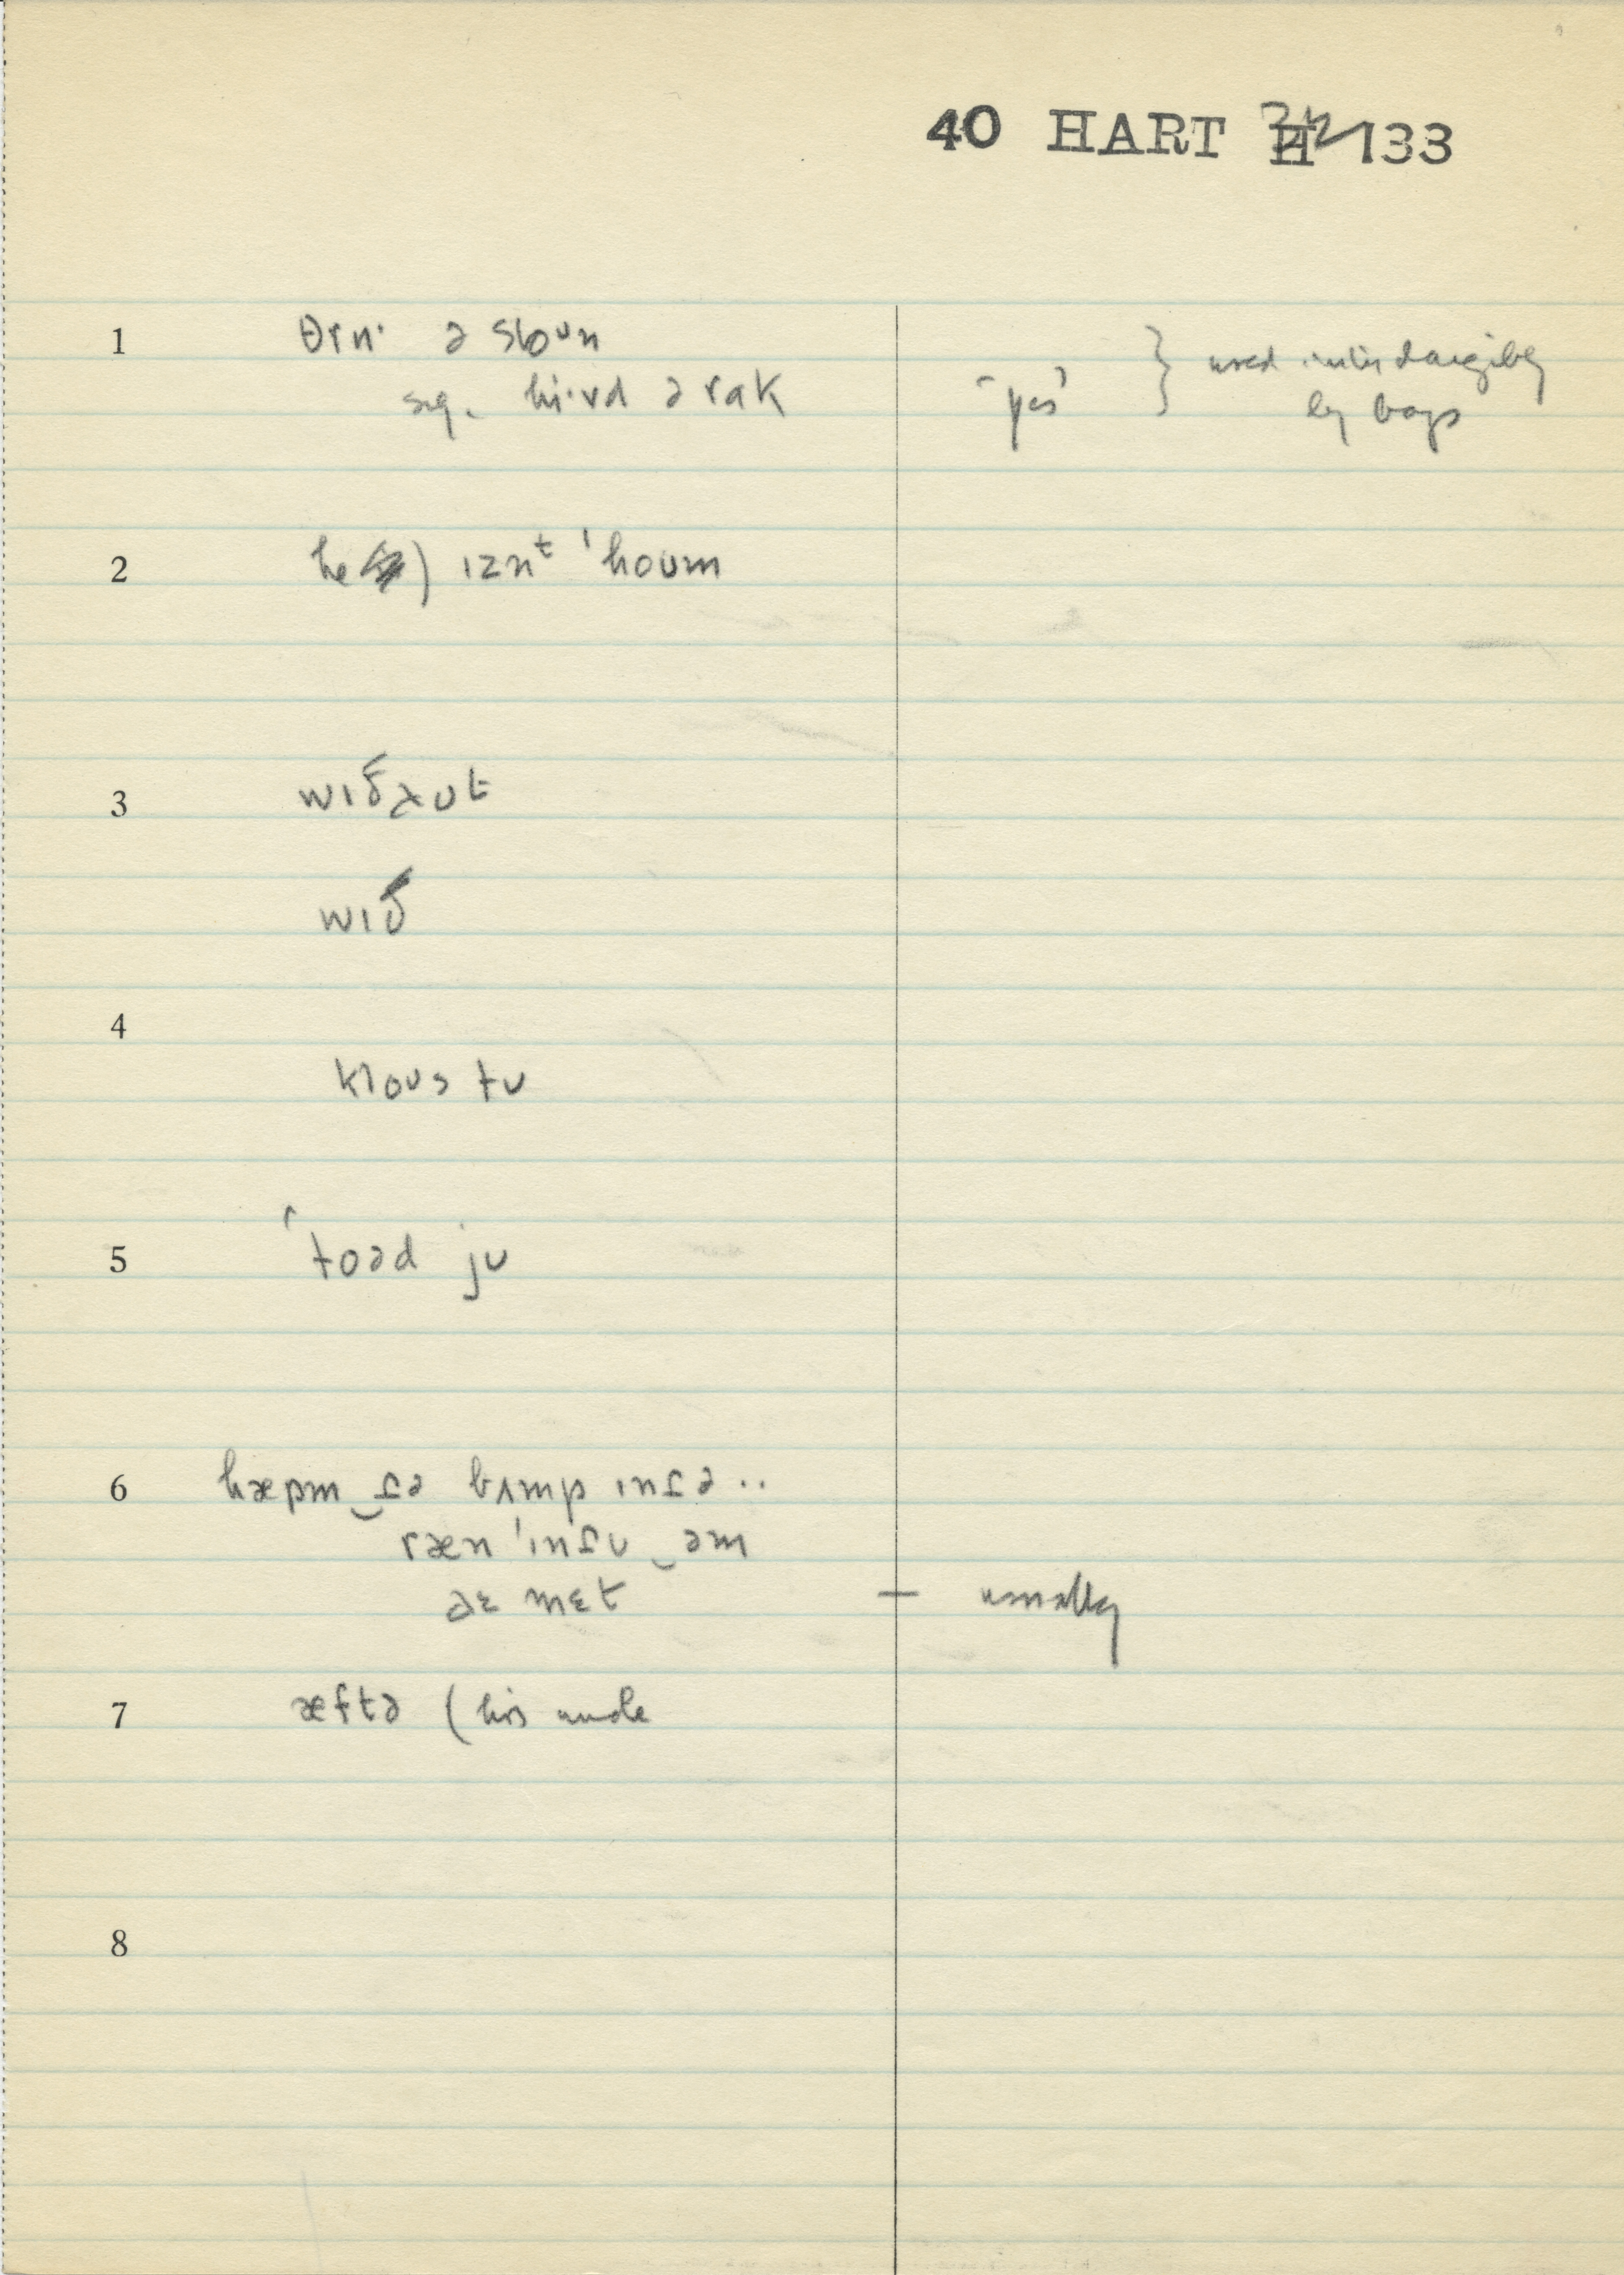 40 HART H 133
1 θrɪn· ə stoun
sug. hi·vd ə rak ‘yes’ } used interchangibly
by boys
2 he ) ɪznᵗ ˈhoʊm
3 wɪðəʊt
wɪð
4 kloʊs tʊ
5 ˈtoəd jʊ
6 hæpm̩‿t̬ə bʌmp ɪnt̬ə ..
ræn ˈɪnt̬ʊ‿əm
aɛ mɛt — usually
7 æftə (his uncle
8